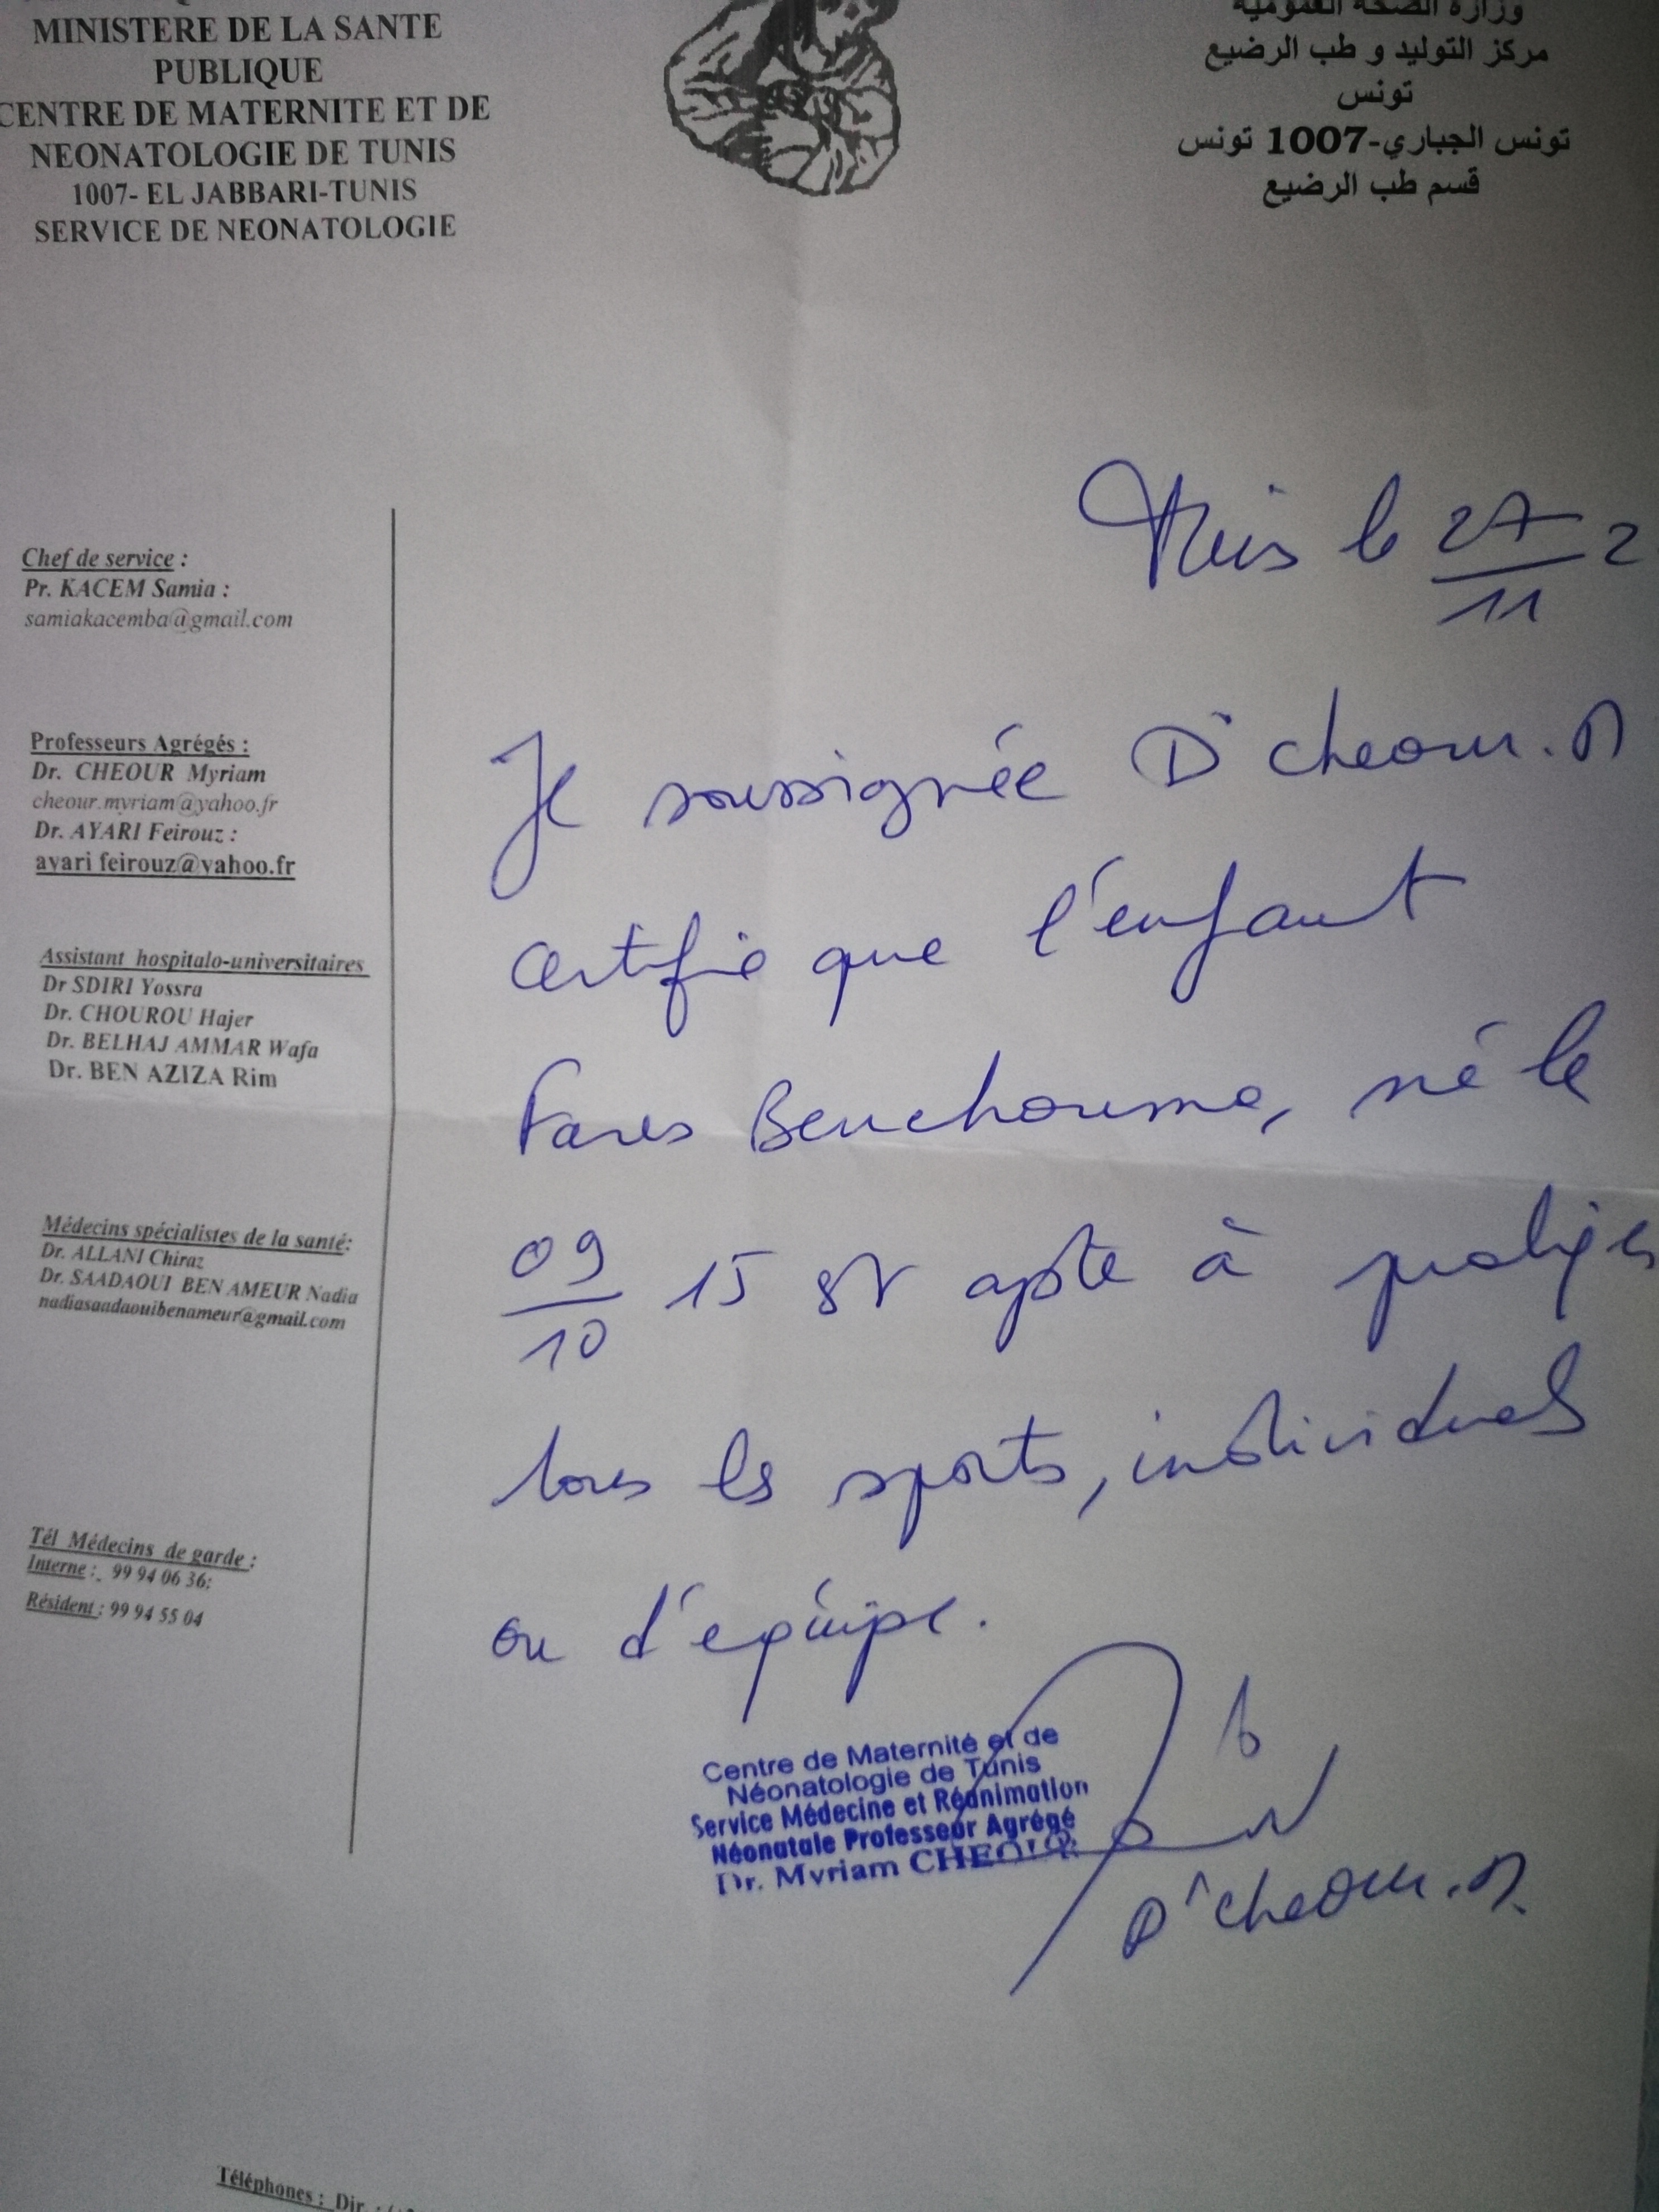 MINISTERE DE LA SANTE
PUBLIQUE
CENTRE DE MATERNITE ET DE
NEONATOLOGIE DE TUNIS
1007- EL JABBARI-TUNIS
SERVICE DE NEONATOLOGIE
وزارة الصحة العمومية
مركز التوليد و طب الرضيع
تونس
تونس الجباري-1007 تونس
قسم طب الرضيع
Chef de service :
Pr. KACEM Samia :
samiakacemba@gmail.com
Professeurs Agrégés :
Dr. CHEOUR Myriam
cheour.myriam@yahoo.fr
Dr. AYARI Feirouz :
ayari feirouz@yahoo.fr
Assistant hospitalo-universitaires
Dr SDIRI Yossra
Dr. CHOUROU Hajer
Dr. BELHAJ AMMAR Wafa
Dr. BEN AZIZA Rim
Médecins spécialistes de la santé:
Dr. ALLANI Chiraz
Dr. SAADAOUI BEN AMEUR Nadia
nadiasaadaouibenameur@gmail.com
Tél Médecins de garde :
Interne : 99 94 06 36;
Résident : 99 94 55 04
Tunis le 27/11 2
Je soussignée Dr cheour. M
certifie que l'enfant
Fares Benchouma, né le
09/10 15 est apte à
tous les sports, individuels
ou d'équipe.
Centre de Maternité et de
Néonatologie de Tunis
Service Médecine et Réanimation
Néonatale Professeur Agrégé
Dr. Myriam CHEOUR
Dr cheour. M
Téléphones : Dir. :